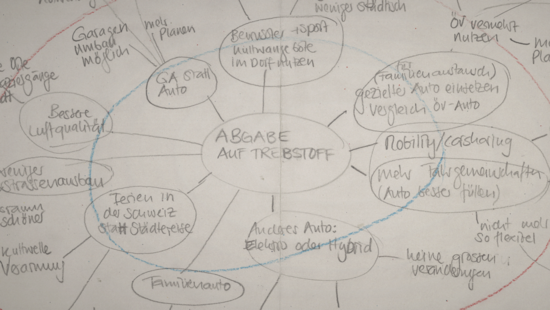 weniger städtisch
Garagen
umbau
möglich
mehr
Planen
Bewusster → Sport
im Dorf nutzen
ÖV vermehrt
nutzen
GA statt
Auto
(Familienaustausch)
gezieltes Auto einsetzen
vergleich ÖV-Auto
Bessere
Luftqualität
ABGABE
AUF TREIBSTOFF
Mobility/carsharing
mehr Fahrgemeinschaften
(Auto besser füllen)
strassenausbau
Ferien in
der Schweiz
statt Städtereise
schöner
kulturelle
Verarmung
Anderes Auto:
Elektro oder Hybrid
nicht mehr
so flexibel
keine grossen
veränderungen
Familienauto